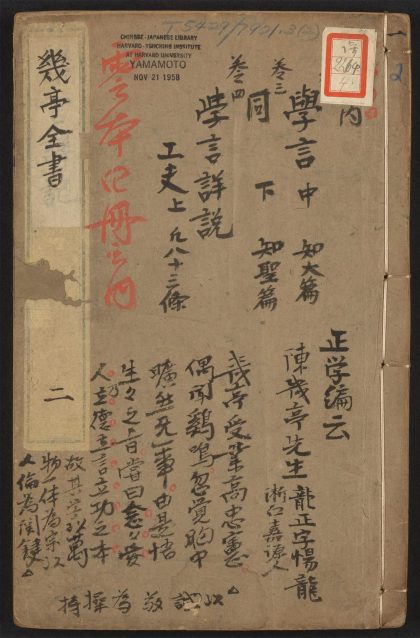 T5429/7921.3(2)
CHINESE-JAPANESE LIBRARY
HARVARD-YENCHING INSTITUTE
AT HARVARD UNIVERSITY
YAMAMOTO
NOV 21 1958
2
内
卷三
學言中 知大篇
同 下 知聖篇
卷四
学言詳説
工夫上 凡八十三條
零本四冊之内
幾亭全書
二
正学編云
陳幾亭先生 龍正字惕龍
浙江嘉人
幾亭受業高忠憲
偶聞鷄鳴忽覺胸中
曠然無一事由是悟
生々之旨嘗曰愛
人乃立德立言立功之本
故其学以萬
物一体為宗以
人倫為関鍵
以誠敬為操持